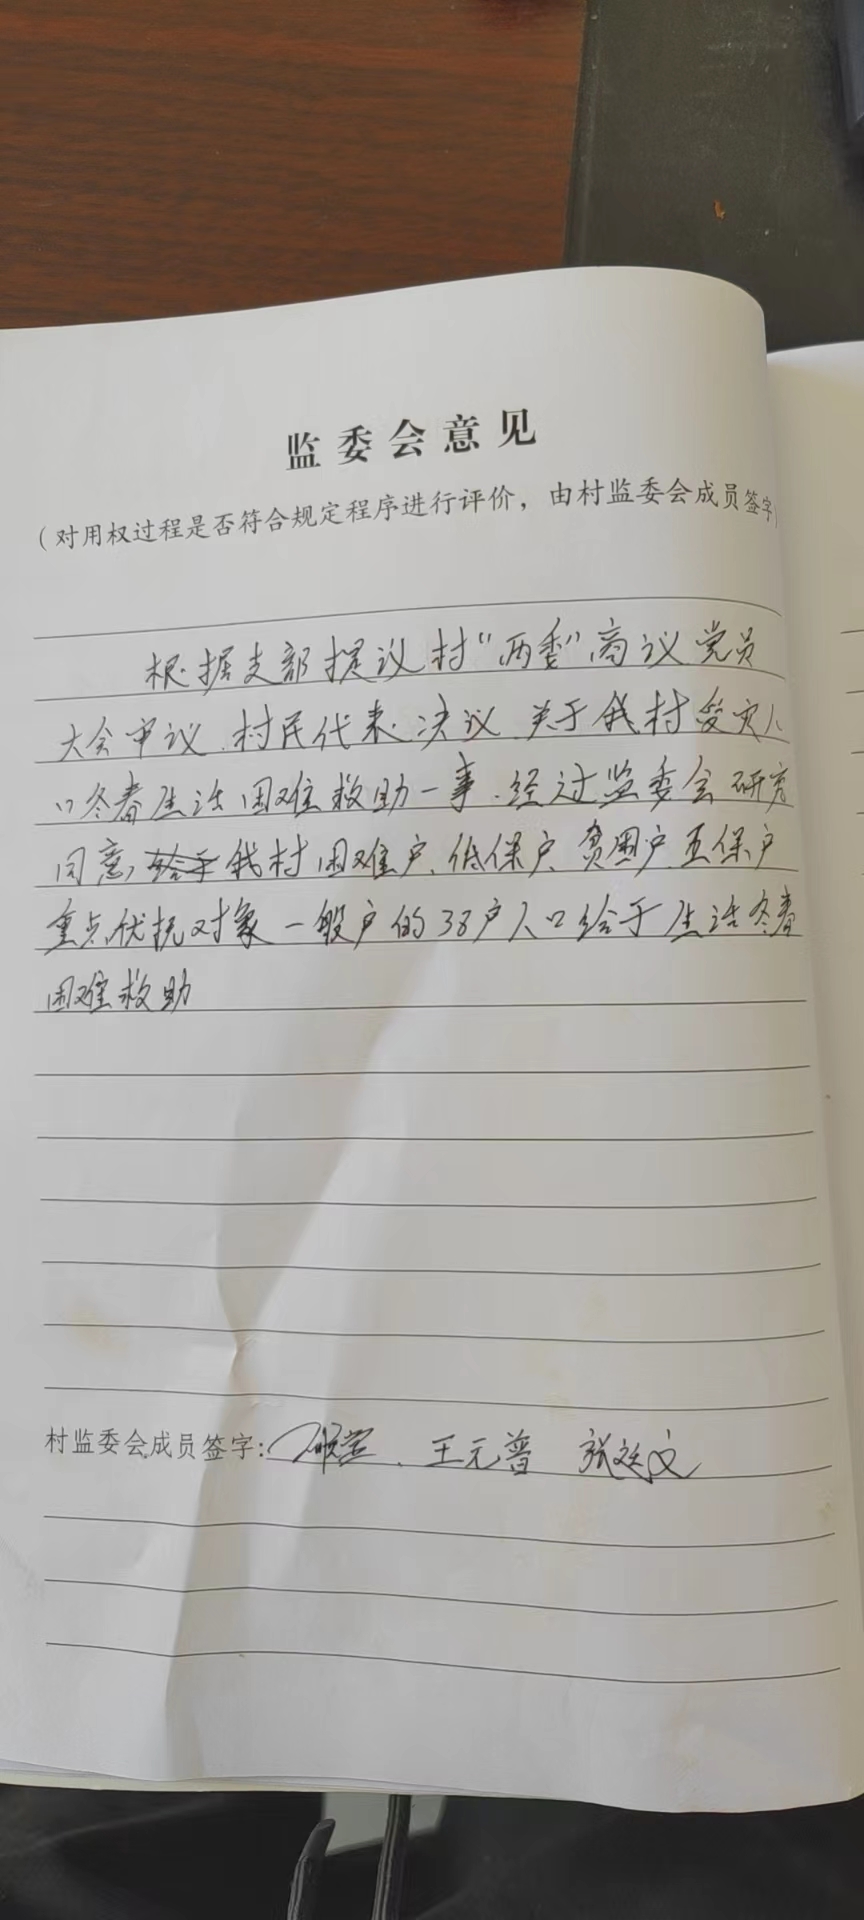 监委会意见
（对用权过程是否符合规定程序进行评价，由村监委会成员签字）
根据支部提议村“两委”商议党员
大会审议、村民代表决议、关于我村受灾人
口冬春生活困难救助一事、经过监委会研究
同意，给予我村困难户、低保户、贫困户、五保户
重点优抚对象一般户的38户人口给于生活冬春
困难救助
村监委会成员签字： 王元普 张廷文